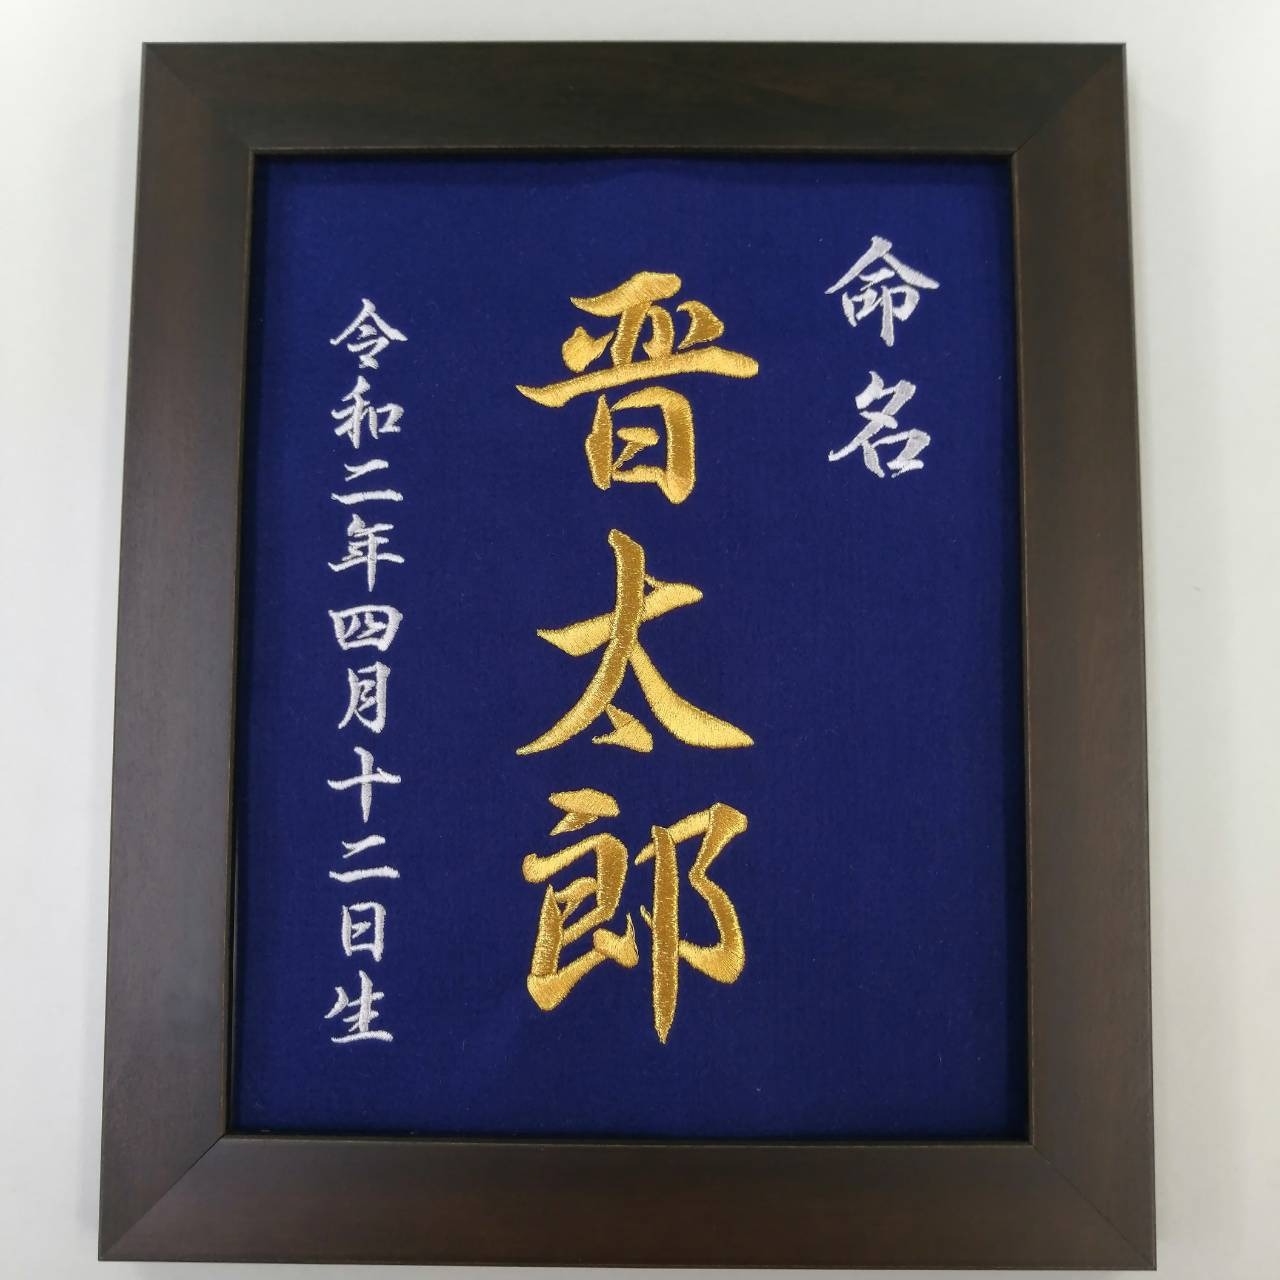 命名
晋太郎
令和二年四月十二日生